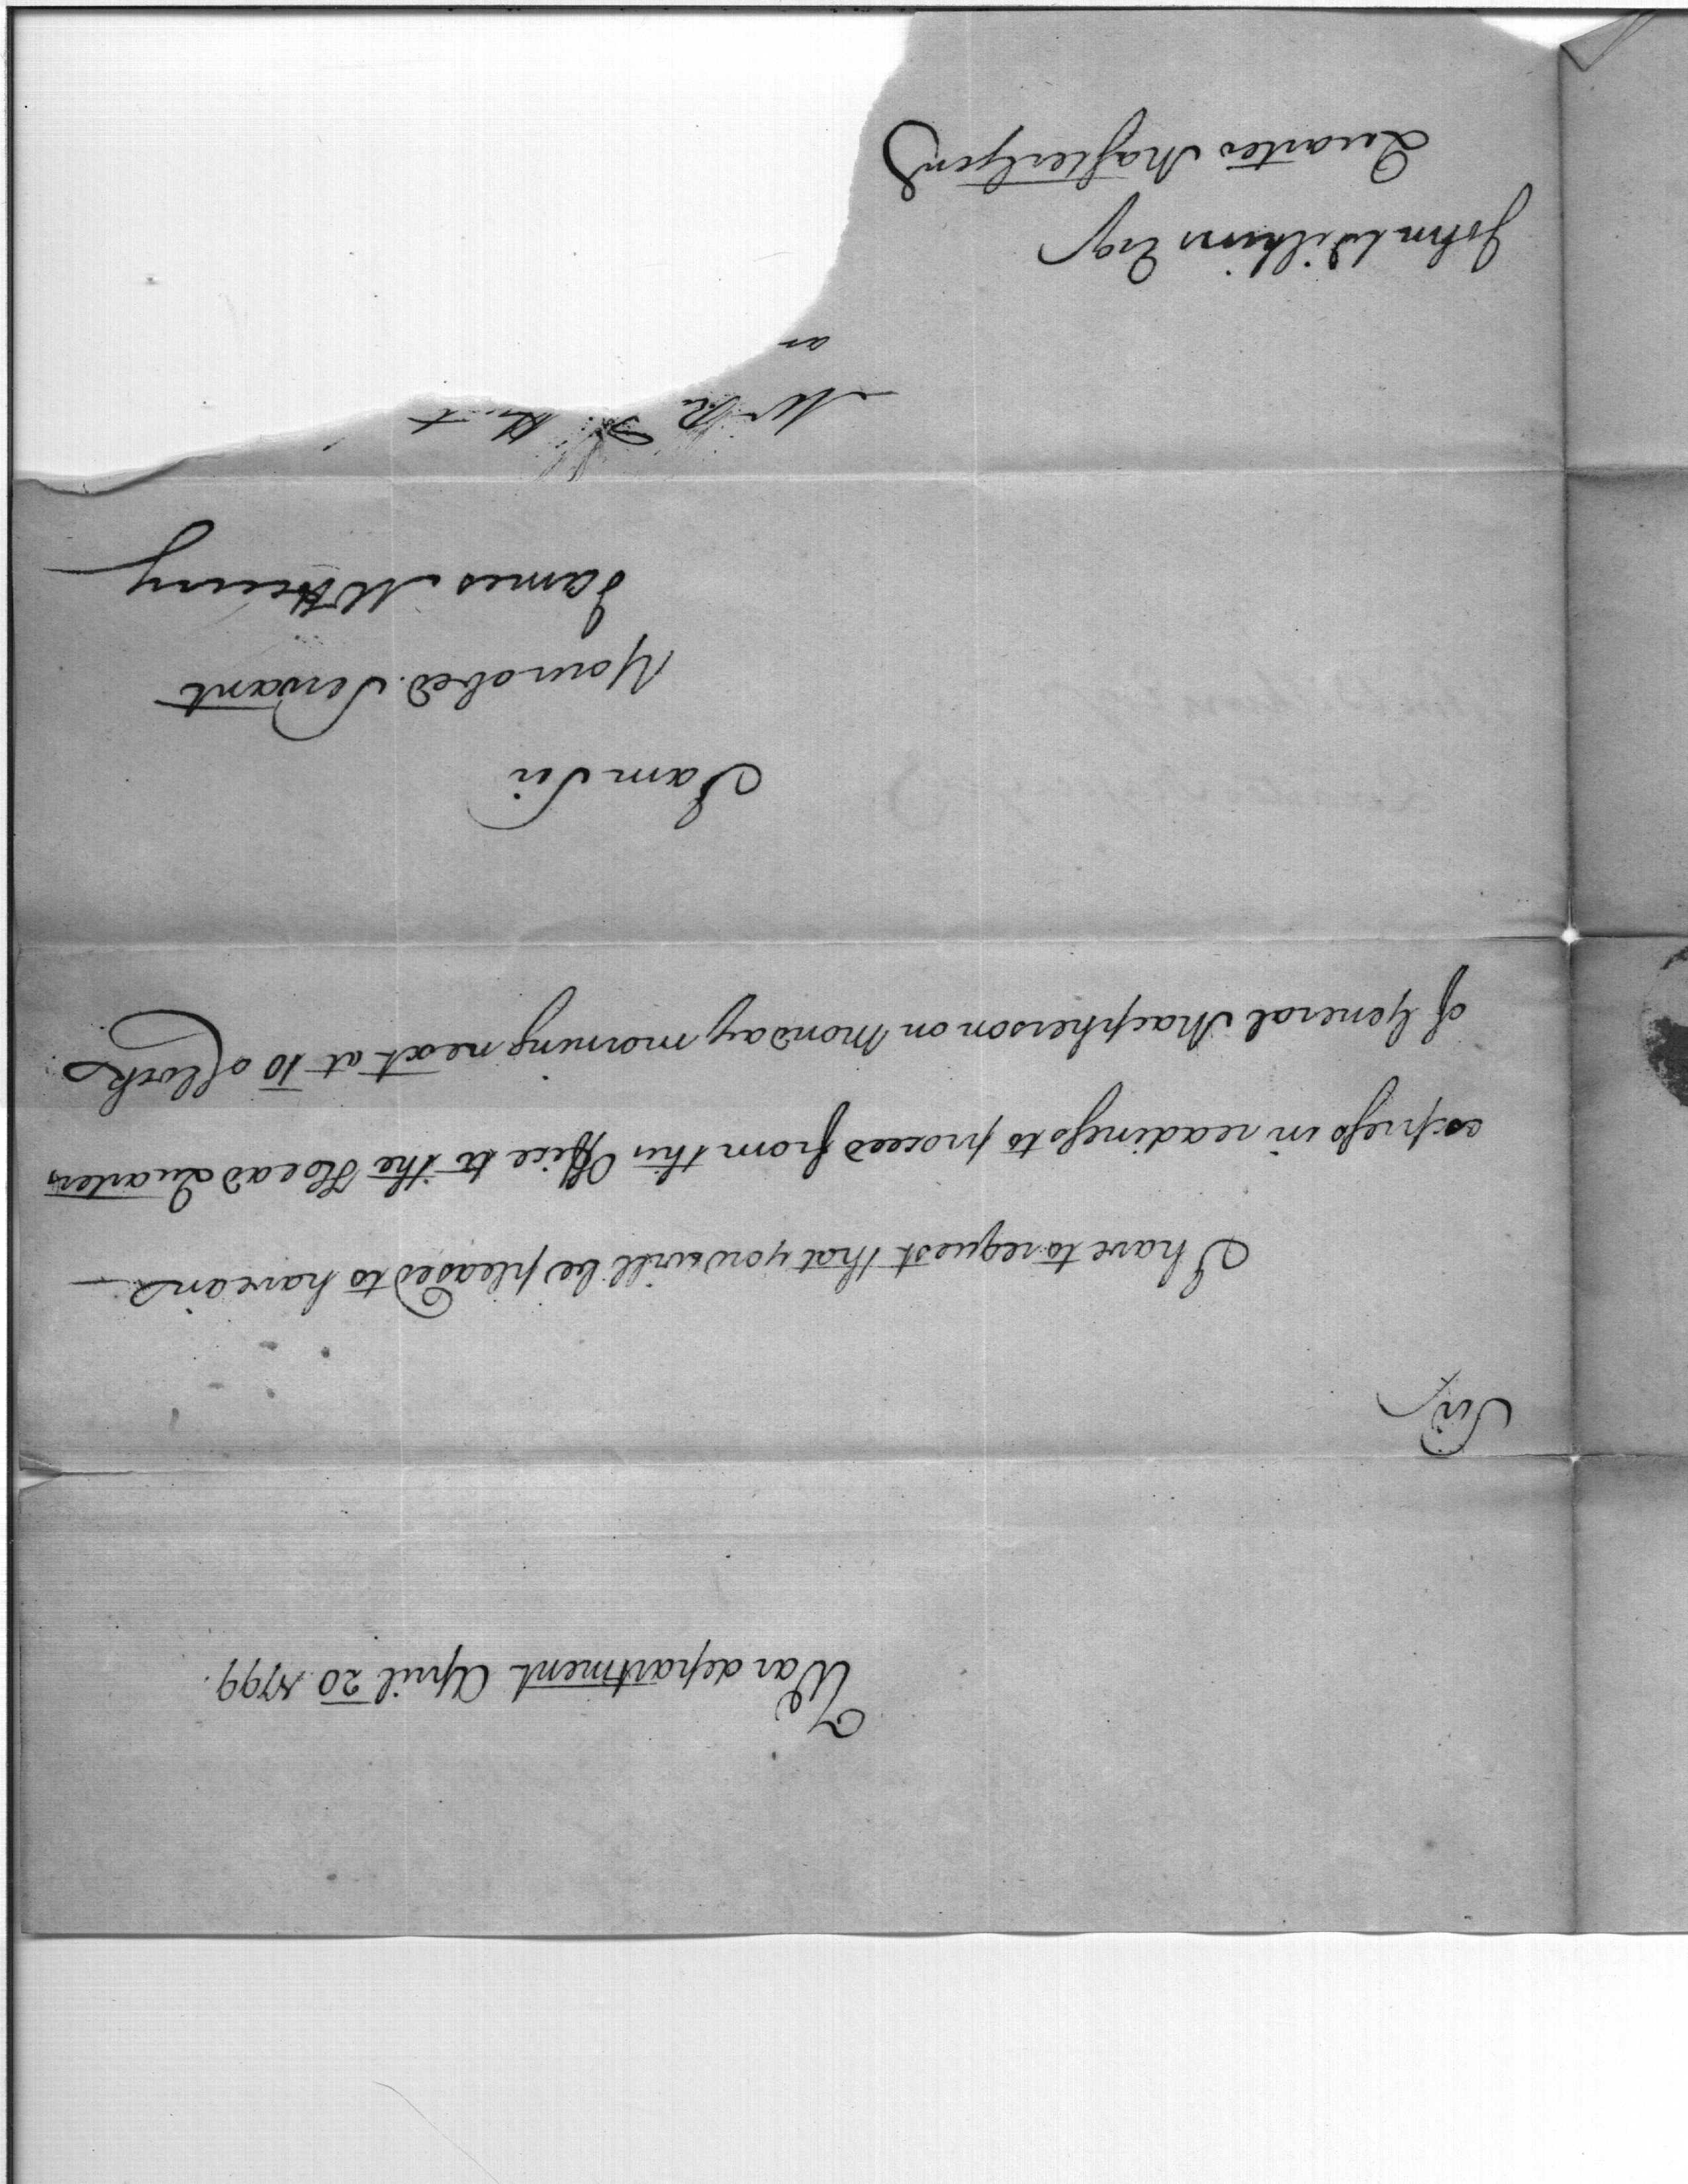 War department April 20 1799.
Sir,
I have to request that you will be pleased to have an
express in readiness to proceed from this Office to the Head Quarters
of General Macpherson on Monday morning next at 10 oClock.
I am Sir
Your obed. Servant
James McHenry
John Wilkins Esqr
Quarter Master Genl